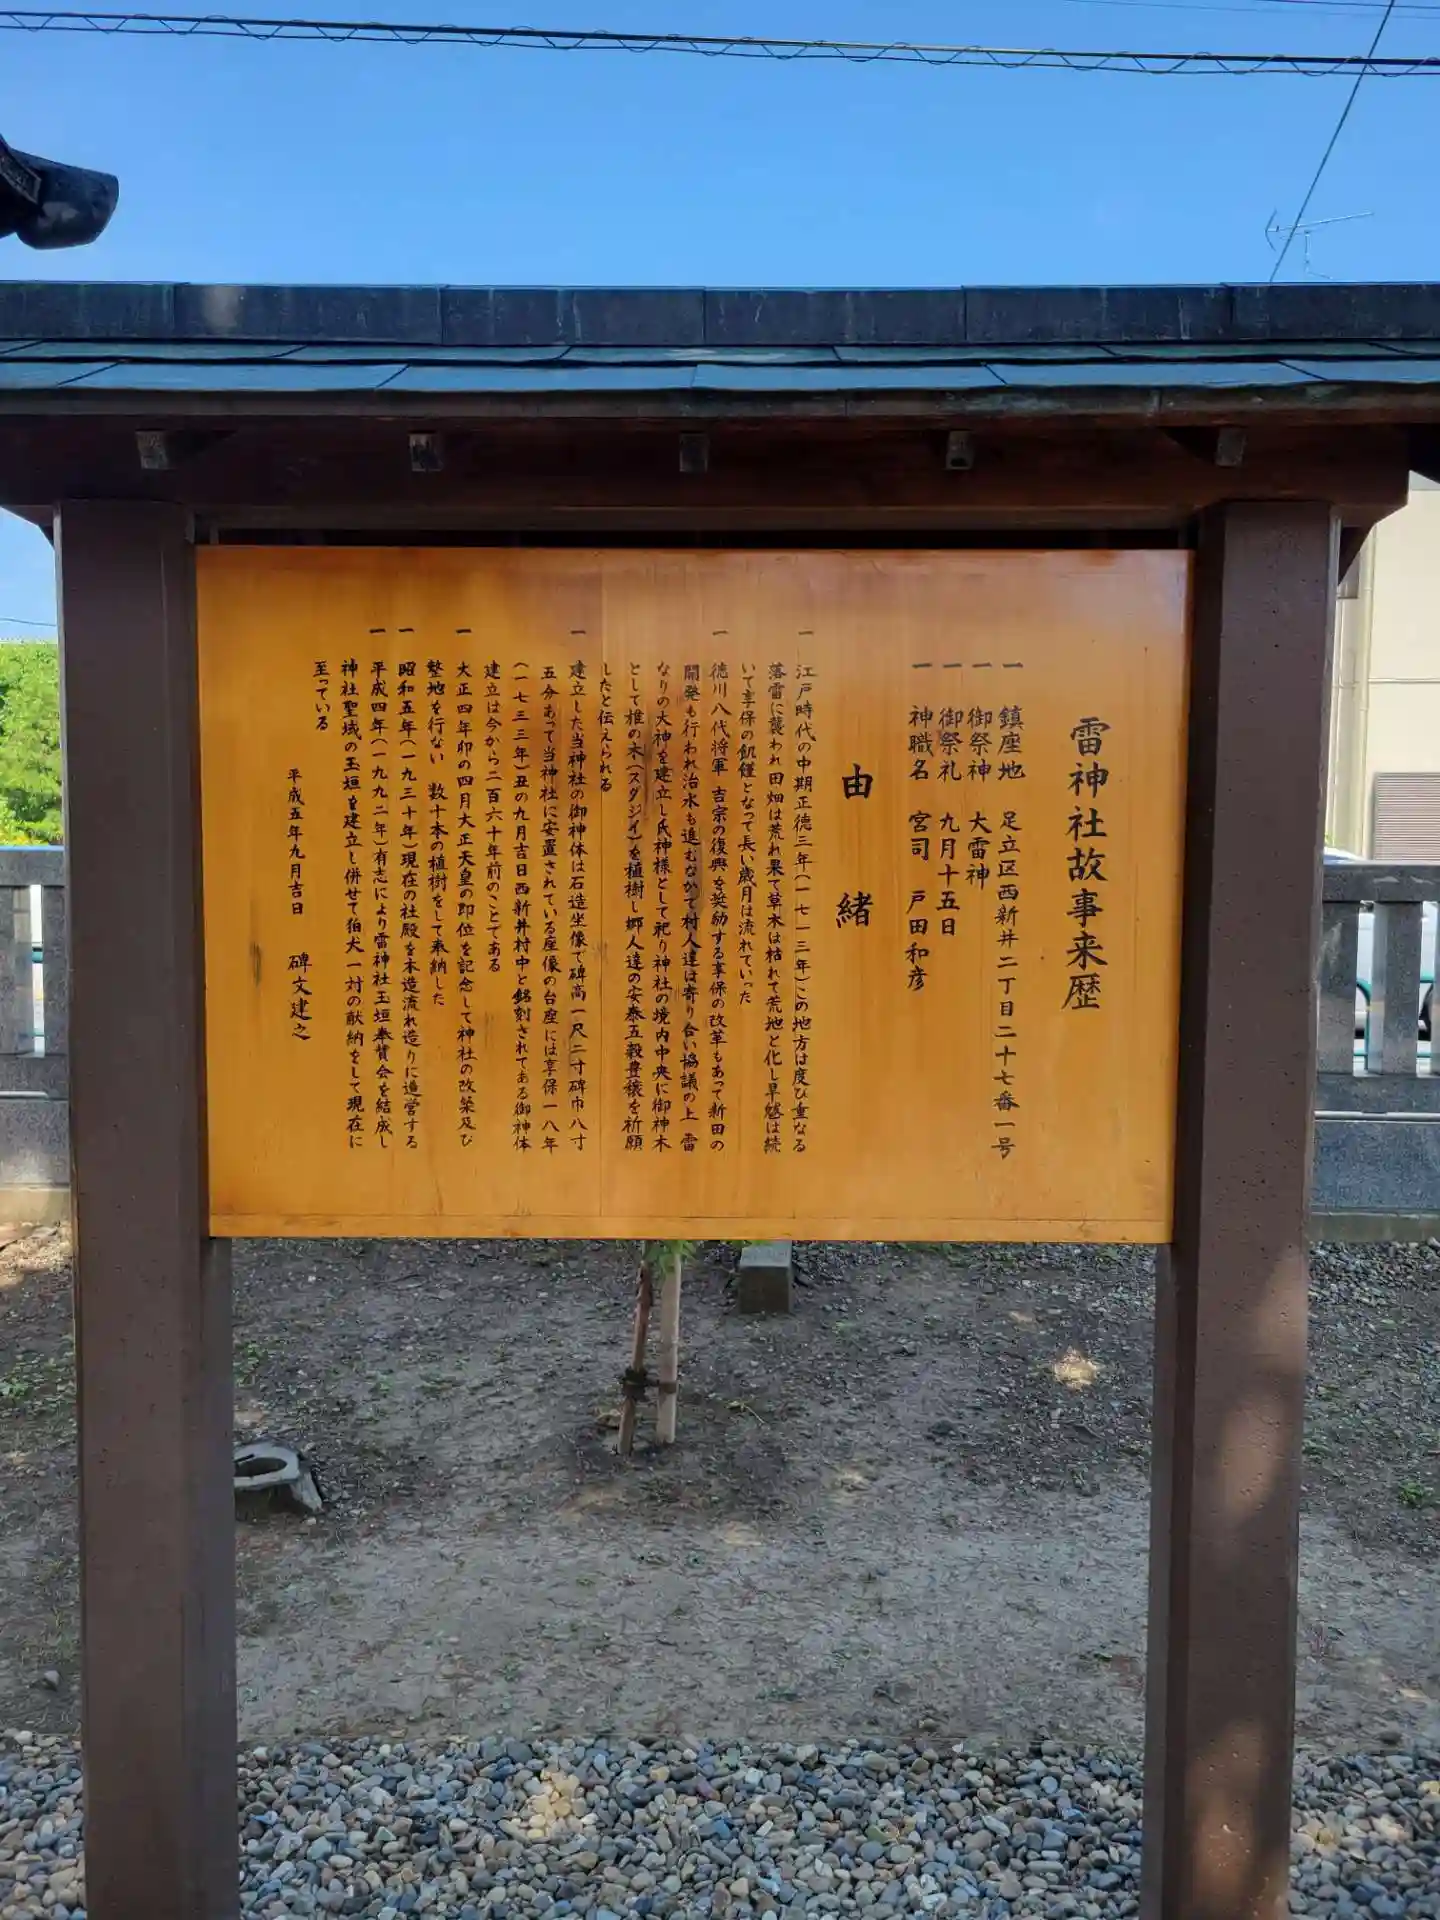 雷神社故事来歴
一 鎮座地 足立区西新井二丁目二十七番一号
一 御祭神 大雷神
一 御祭礼 九月十五日
一 神職名 宮司 戸田和彦
由緒
一 江戸時代の中期正徳三年(一七一三年)この地方は度び重なる
落雷に襲われ田畑は荒れ果て草木は枯れて荒地と化し旱魃は続
いて享保の飢饉となって長い歳月は流れていった
一 徳川八代将軍 吉宗の復興を奨励する享保の改革もあって新田の
開発も行われ治水も進むなかで村人達は寄り合い協議の上 雷
なりの大神を建立し氏神様として祀り神社の境内中央に御神木
として椎の木(スダジイ)を植樹し郷人達の安泰五穀豊穣を祈願
したと伝えられる
一 建立した当神社の御神体は石造坐像で碑高一尺二寸碑巾八寸
五分あって当神社に安置されている座像の台座には享保一八年
(一七三三年)丑の九月吉日西新井村中と銘刻されてある御神体
建立は今から二百六十年前のことである
一 大正四年卯の四月大正天皇の即位を記念して神社の改築及び
整地を行ない 数十本の植樹をして奉納した
一 昭和五年(一九三十年)現在の社殿を本造流れ造りに造営する
一 平成四年(一九九二年)有志により雷神社玉垣奉賛会を結成し
神社聖域の玉垣を建立し併せて狛犬一対の献納をして現在に
至っている
平成五年九月吉日 碑文建之